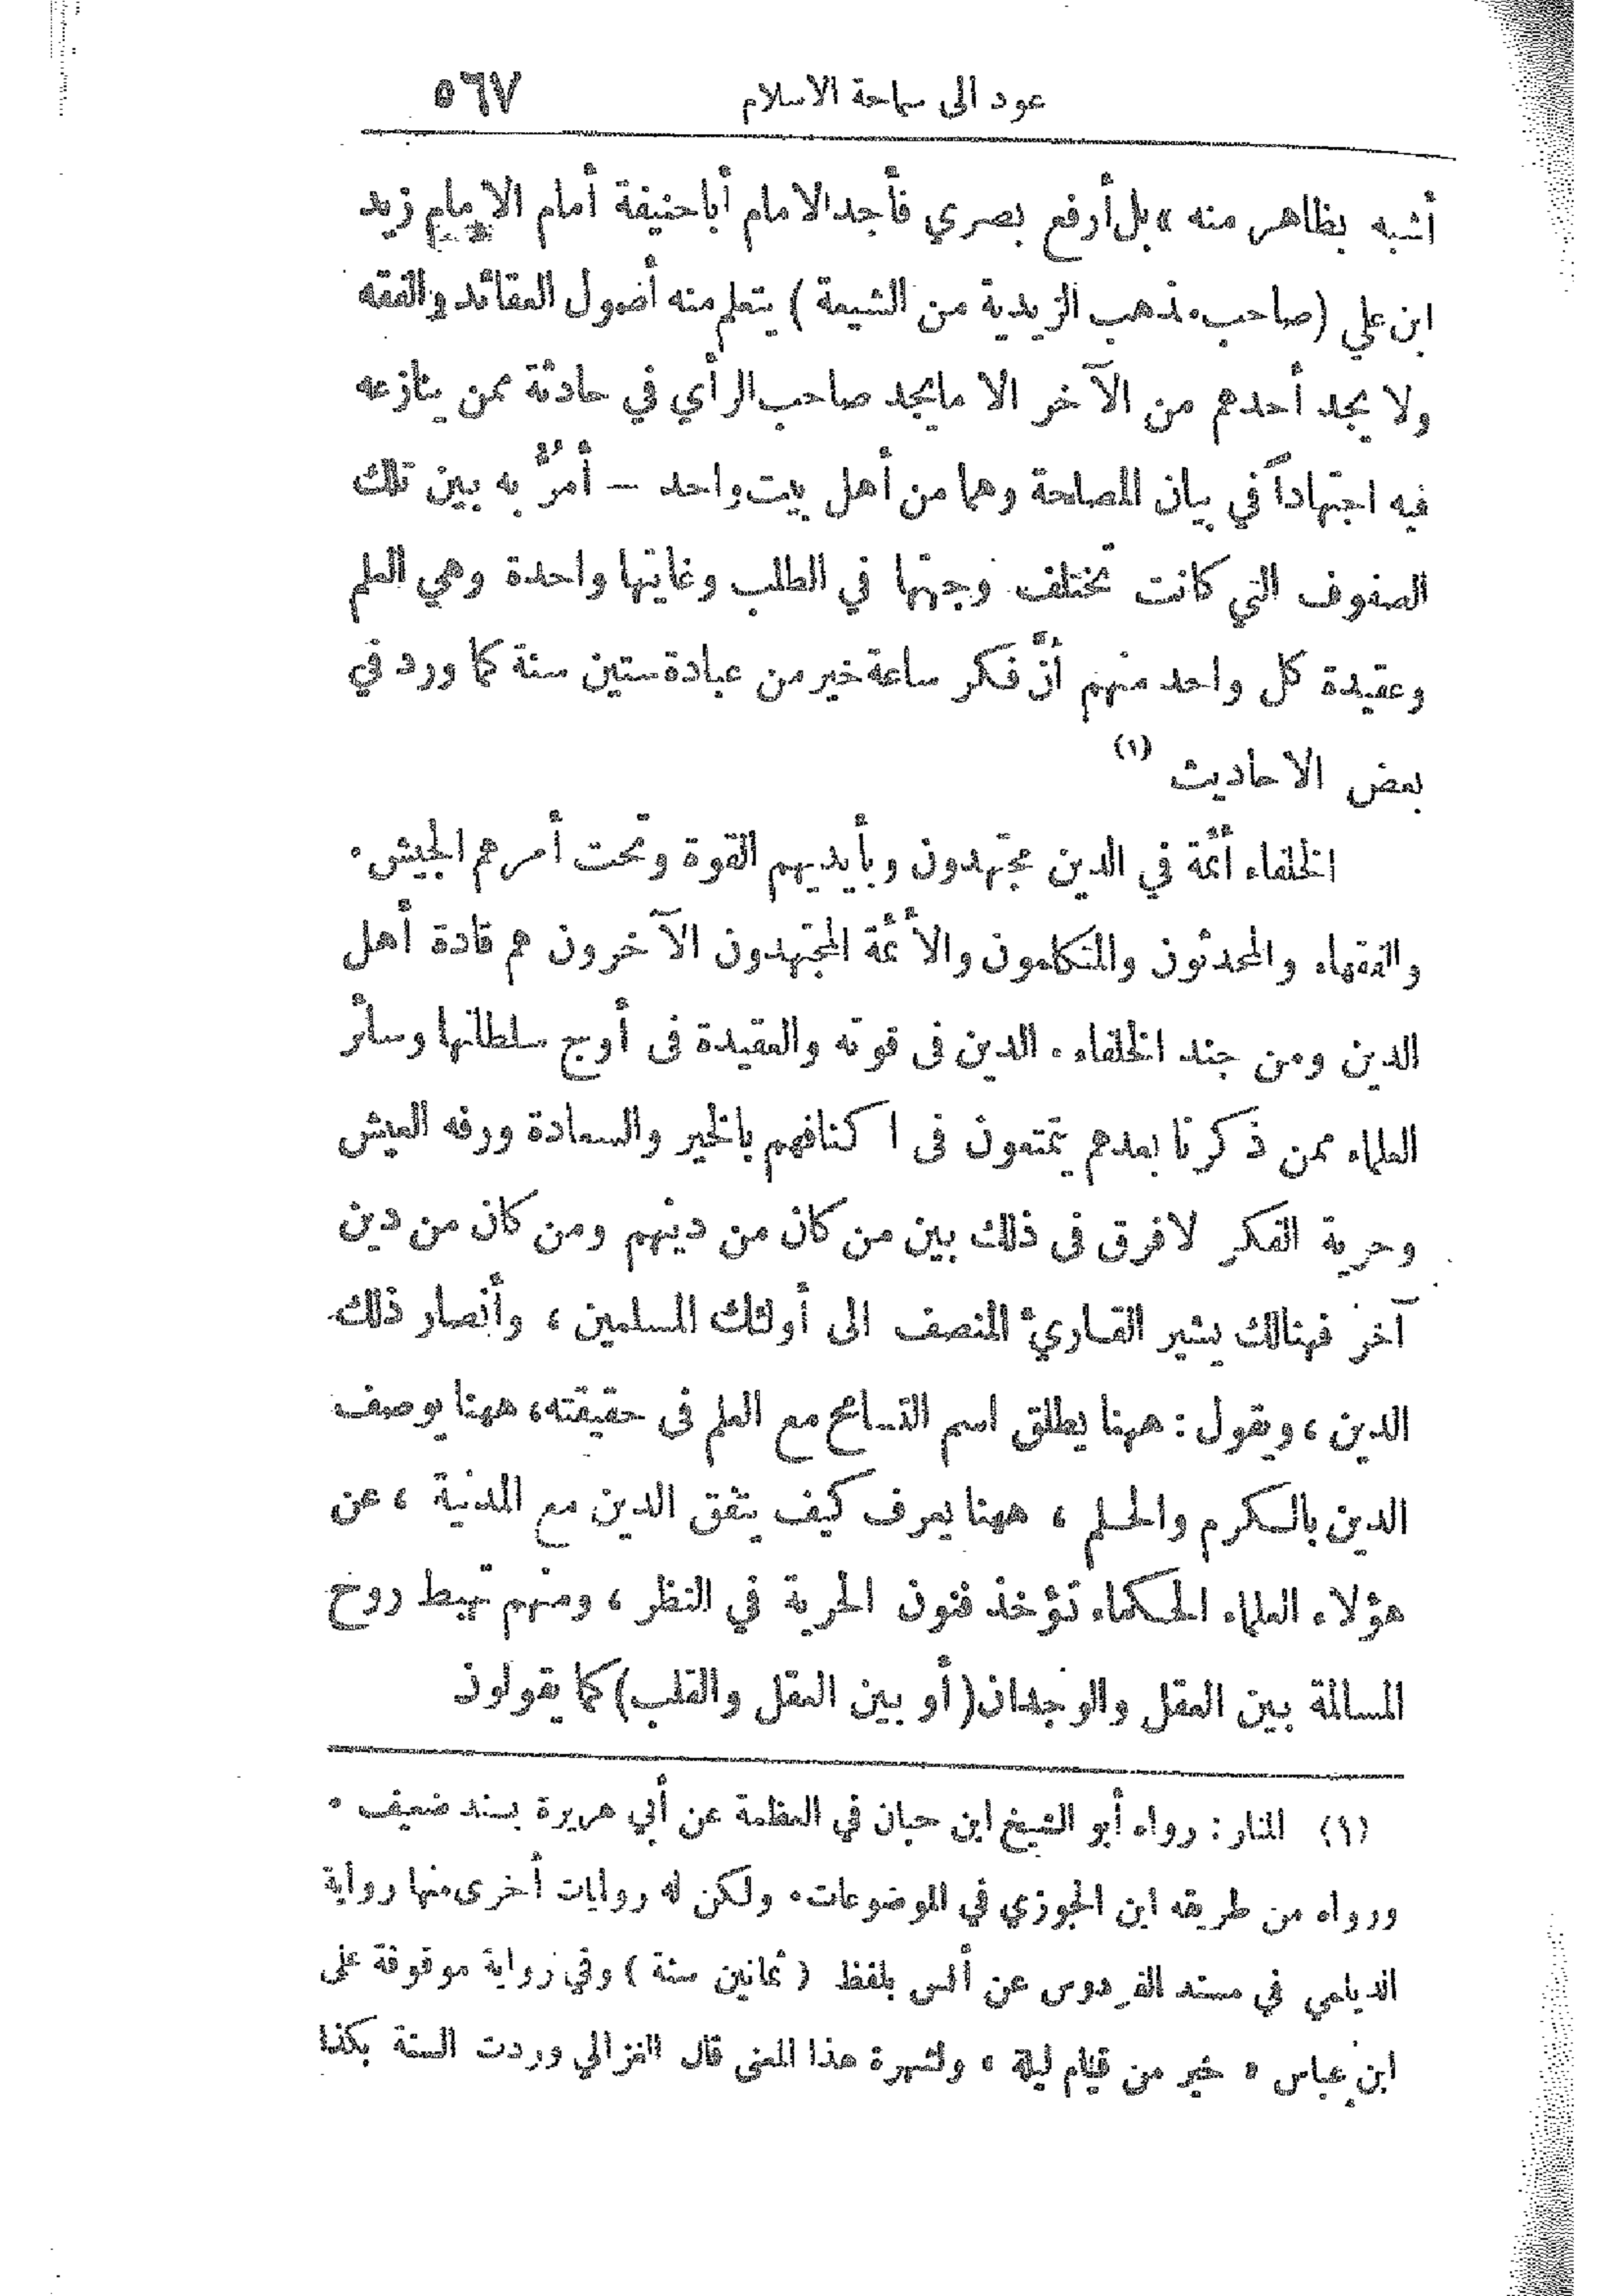 عود الى سماحة الاسلام ٥٦٧
أشبه بظاهر منه » بل أرفع بصري فأجد الامام أبا حنيفة أمام الامام زيد
ابن علي (صاحب مذهب الزيدية من الشيعة) يتعلم منه أصول العقائد والفقه
ولا يجد أحدهم من الآخر الا ما يجد صاحب الرأي في حادثة ممن ينازعه
فيه اجتهاداً في بيان المصلحة وهما من أهل بيت واحد — أمرُّ به بين تلك
الصفوف التي كانت تختلف وجهتها في الطلب وغايتها واحدة وهي العلم
وعقيدة كل واحد منهم أنَّ فكر ساعة خير من عبادة ستين سنة كما ورد في
بعض الاحاديث (١)
الخلفاء أئمة في الدين مجتهدون وبأيديهم القوة وتحت أمرهم الجيش .
والفقهاء والمحدثون والمتكلمون والأئمة المجتهدون الآخرون هم قادة أهل
الدين ومن جند الخلفاء . الدين فى قوته والعقيدة فى أوج سلطانها وسائر
العلماء ممن ذكرنا بعدهم يتمتعون فى اكنافهم بالخير والسعادة ورفه العيش
وحرية الفكر لا فرق فى ذلك بين من كان من دينهم ومن كان من دين
آخر فهنالك يشير القارئ المنصف الى أولئك المسلمين ، وأنصار ذلك
الدين ، ويقول : ههنا يطلق اسم التسامح مع العلم فى حقيقته، ههنا يوصف
الدين بالكرم والحلم ، ههنا يعرف كيف يتفق الدين مع المدنية ، عن
هؤلاء العلماء الحكماء تؤخذ فنون الحرية في النظر ، ومنهم تهبط روح
المسالمة بين العقل والوجدان (أو بين العقل والقلب) كما يقولون
(١) المنار : رواه أبو الشيخ ابن حبان في العظمة عن أبي هريرة بسند ضعيف .
ورواه من طريقه ابن الجوزي في الموضوعات . ولكن له روايات أخرى منها رواية
الديلمي في مسند الفردوس عن أنس بلفظ ( ثمانين سنة ) وفي رواية موقوفة على
ابن عباس « خير من قيام ليلة » ولشهرة هذا المعنى قال الغزالي وردت السنة بكذا